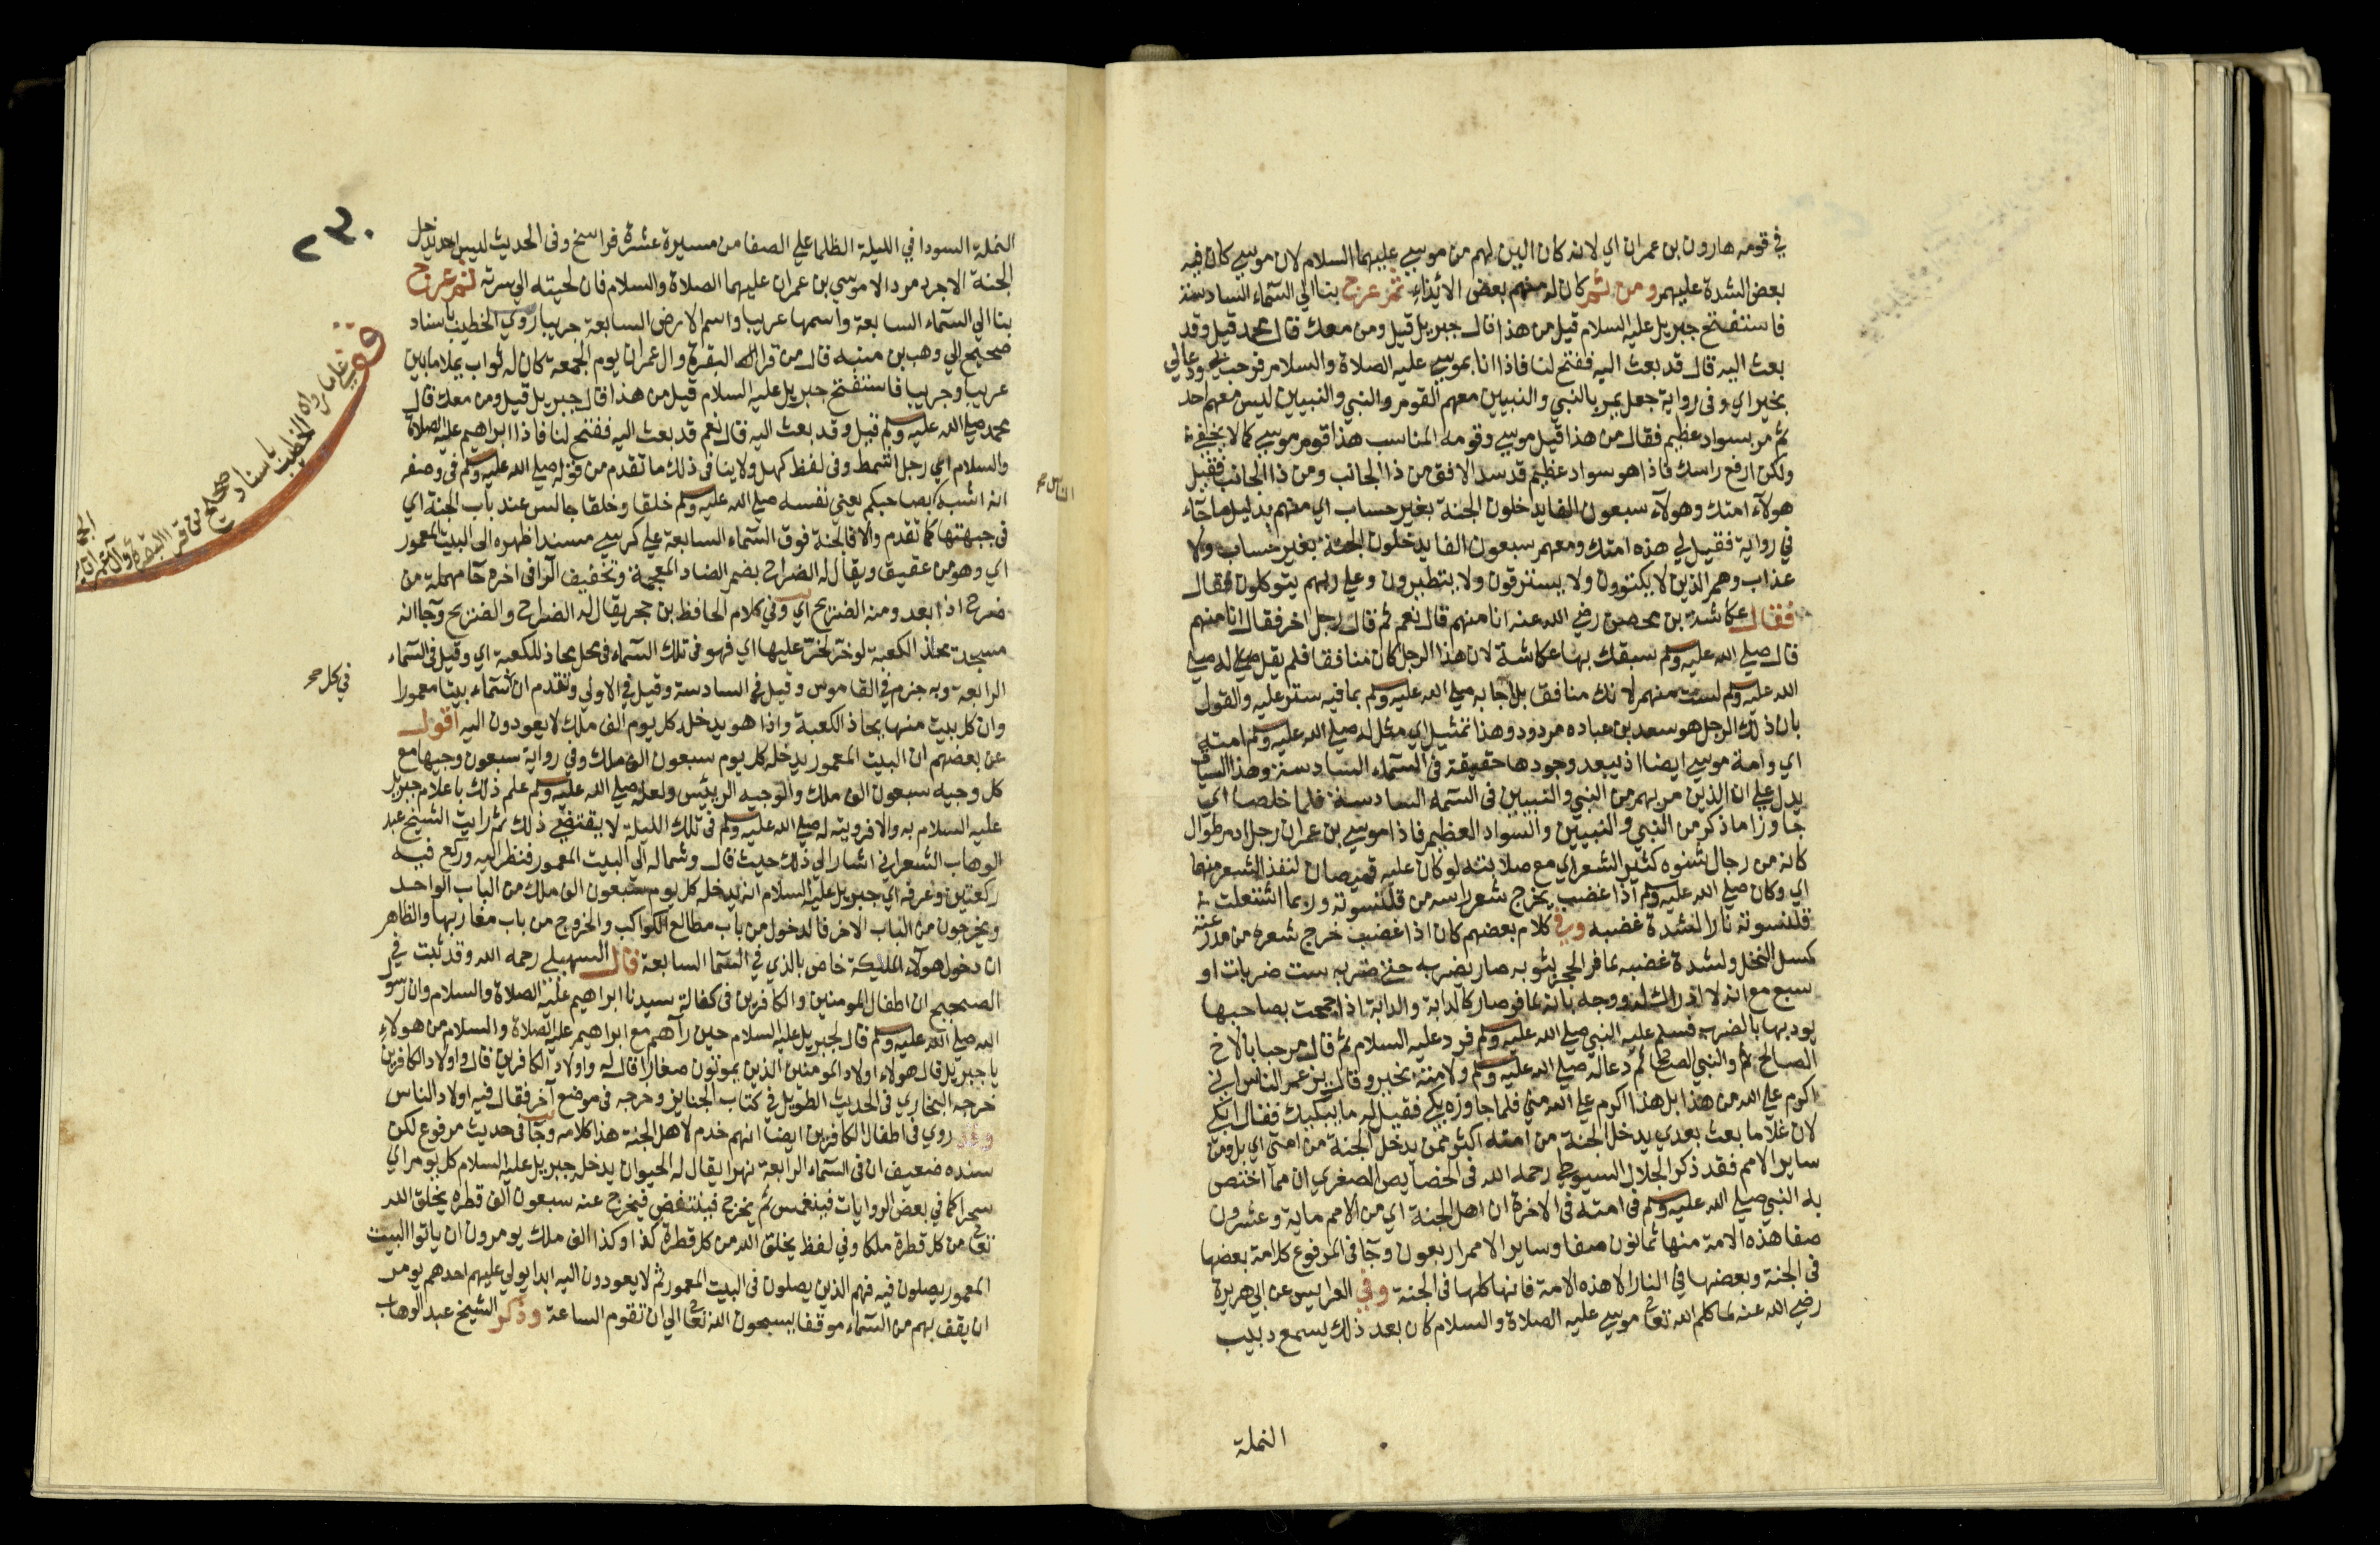 في قومه هارون بن عمران اي لانه كان الين لهم من موسي عليهما السلام لان موسي كان فيه
بعض الشدة عليهم ومن ثم كان له منهم بعض الايذاء ثم عرج بنا الي السماء السادسة
فاستفتح جبريل عليه السلام قيل من هذا قال جبريل قيل ومن معك قال محمد قيل وقد
بعث اليه قال قد بعث اليه ففتح لنا فاذا انا بموسي عليه الصلاة والسلام فرحب بي ودعا لي
بخير اي وفي رواية جعل يمر بالنبي والنبيين معهم القوم والنبي والنبيين ليس معهم احد
ثم مر بسواد عظيم فقال من هذا قيل موسي وقومه المناسب هذا قوم موسي كما لا يخفي
ولكن ارفع راسك فاذا هو سواد عظيم قد سد الافق من ذا الجانب ومن ذا الجانب فقيل
هولآء امتك وهولآء سبعون الفا يدخلون الجنة بغير حساب اي منهم بدليل ما جآء
في رواية فقيل لي هذه امتك ومعهم سبعون الفا يدخلون الجنة بغير حساب ولا
عذاب وهم الذين لا يكتوون ولا يسترقون ولا يتطيرون وعلي ربهم يتوكلون فقال
فقال عكاشة بن محصن رضي الله عنه انا منهم قال نعم ثم قال رجل اخر فقال انا منهم
قال صلي الله عليه وسلم سبقك بها عكاشة لان هذا الرجل كان منافقا فلم يقل له صلي
الله عليه وسلم لست منهم لانك منافق بل اجابه صلي الله عليه وسلم بما فيه ستر عليه والقول
بان ذلك الرجل هو سعد بن عباده مردود وهذا تمثيل اي مثل له صلي الله عليه وسلم امته
اي وامة موسي ايضا اذ يبعد وجودها حقيقة في السماء السادسة وهذا السياق
يدل علي ان الذين مر بهم من النبي والنبيين في السماء السادسة فلما خلصا اي
جاوزا ما ذكر من النبي والنبيين والسواد العظيم فاذا موسي بن عمران رجل ادم طوال
كانه من رجال شنوه كثير الشعر اي مع صلابته لو كان عليه قميصان لنفذ الشعر منهما
اي وكان صلي الله عليه وسلم اذا غضب يخرج شعر راسه من قلنسوته وربما اشتعلت
قلنسوته نارا لشدة غضبه وفي كلام بعضهم كان اذا غضب خرج شعره من مدرعته
كسل النخل ولشدة غضبه لما فر الحجر بثوبه صار يضربه حتي ضربه ست ضربات او
سبع مع انه لا ادراك له ووجه بانه لما فر صار كالدابة والدابة اذا جمحت بصاحبها
يودبها بالضرب فسلم عليه النبي صلي الله عليه وسلم فرد عليه السلام ثم قال مرحبا بالاخ
الصالح والنبي الصالح ثم دعا له صلي الله عليه وسلم ولامته بخير وقال يزعم الناس اني
اكرم علي الله من هذا بل هذا اكرم علي الله مني فلما جاوزه بكي فقيل له ما يبكيك فقال ابكي
لان غلاما بعث بعدي يدخل الجنة من امته اكثر ممن يدخل الجنة من امتي اي بل ومن
ساير الامم فقد ذكر الجلال السيوطي رحمه الله في الخصايص الصغري ان مما اختص
به النبي صلي الله عليه وسلم في امته في الاخرة ان اهل الجنة اي من الامم ماية وعشرون
صفا هذه الامة منها ثمانون صفا وساير الامم اربعون وجآ في المرفوع كل امة بعضها
في الجنة وبعضها في النار الا هذه الامة فانها كلها في الجنة وفي العرايس عن ابي هريرة
رضي الله عنه لما كلم الله تعالي موسي عليه الصلاة والسلام كان بعد ذلك يسمع دبيب
النملة
٢٣٠
النملة السودا في الليلة الظلما علي الصفا من مسيرة عشرة فراسخ وفي الحديث ليس احد يدخل
الجنة الا جرد مرد الا موسي بن عمران عليهما الصلاة والسلام فان لحيته الي سرته ثم عرج
بنا الي السماء السابعة واسمها عريبا واسم الارض السابعة جريبا روي الخطيب باسناد
صحيح الي وهب بن منبه قال من قرا البقرة وال عمران يوم الجمعة كان له ثواب يملا ما بين
عريبا وجريبا فاستفتح جبريل عليه السلام قيل من هذا قال جبريل قيل ومن معك قال
محمد صلي الله عليه وسلم قيل وقد بعث اليه قال نعم قد بعث اليه ففتح لنا فاذا ابراهيم عليه الصلاة
والسلام اي رجل اشمط وفي لفظ كهل ولا ينافي ذلك ما تقدم من قوله صلي الله عليه وسلم في وصفه
انه اشبه بصاحبكم يعني نفسه صلي الله عليه وسلم خلقا وخلقا جالس عند باب الجنة اي
في جهتها كما تقدم والا فالجنة فوق السماء السابعة علي كرسي مسندا ظهره الي البيت المعمور
اي وهو من عقيق ويقال له الضراح بضم الضاد المعجمة وتخفيف الرا في اخره حآ مهملة من
ضرح اذا بعد ومنه الضريح اي وفي كلام الحافظ بن حجر يقال له الضراح والضريح وجآ انه
مسجد بحذا الكعبة لو خر لخر عليها اي فهو في تلك السماء في محل يحاذ للكعبة اي وقيل في السماء
الرابعة وبه جزم في القاموس وقيل في السادسة وقيل في الاولي وتقدم ان في كل سماء بيتا معمورا
وان كل بيت منها بحاذ الكعبة واذا هو يدخله كل يوم الف ملك لا يعودون اليه اقول
عن بعضهم ان البيت المعمور يدخله كل يوم سبعون الف ملك وفي رواية سبعون وجيها مع
كل وجيه سبعون الف ملك والوجيه الرييس ولعله صلي الله عليه وسلم علم ذلك باعلام جبريل
عليه السلام به والا فرويته له صلي الله عليه وسلم في تلك الليلة لا يقتضي ذلك ثم رايت الشيخ عبد
الوهاب الشعراني اشار الي ذلك حيث قال وشماله الي البيت المعمور فنظر اليه وركع فيه
ركعتين وعرفه اي جبريل عليه السلام انه يدخله كل يوم سبعون الف ملك من الباب الواحد
ويخرجون من الباب الاخر فالدخول من باب مطالع الكواكب والخروج من باب مغاربها والظاهر
ان دخول هولاء المليكة خاص بالذي في السما السابعة قال السهيلي رحمه الله وقد ثبت في
الصحيح ان اطفال المومنين والكافرين في كفالة سيدنا ابراهيم عليه الصلاة والسلام وان رسول
الله صلي الله عليه وسلم قال لجبريل عليه السلام حين رآهم مع ابراهيم عليه الصلاة والسلام من هولاء
يا جبريل قال هولاء اولاد المومنين الذين يموتون صغارا قال له واولاد الكافرين قال واولاد الكافرين
خرجه البخاري في الحديث الطويل في كتاب الجنايز وخرجه في موضع آخر فقال فيه اولاد الناس
وقد روي في اطفال الكافرين ايضا انهم خدم لاهل الجنة هذا كلامه وجآ في حديث مرفوع لكن
سنده ضعيف ان في السماء الرابعة نهرا يقال له الحيوان يدخله جبريل عليه السلام كل يوم اي
سحرا كما في بعض الروايات فينغمس ثم يخرج فينتفض فيخرج عنه سبعون الف قطره يخلق الله
تعالي من كل قطرة ملكا وفي لفظ يخلق الله من كل قطرة كذا وكذا الف ملك يومرون ان ياتوا البيت
المعمور يصلون فيه فهم الذين يصلون في البيت المعمور ثم لا يعودون اليه ابدا يولي عليهم احدهم يومر
ان يقف بهم من السماء موقفا يسبحون الله تعالي الي ان تقوم الساعة وذكر الشيخ عبد الوهاب
الناس
في كل
قف علي ما رواه الخطيب
باسناد صحيح من قرا البقرة وآل عمران